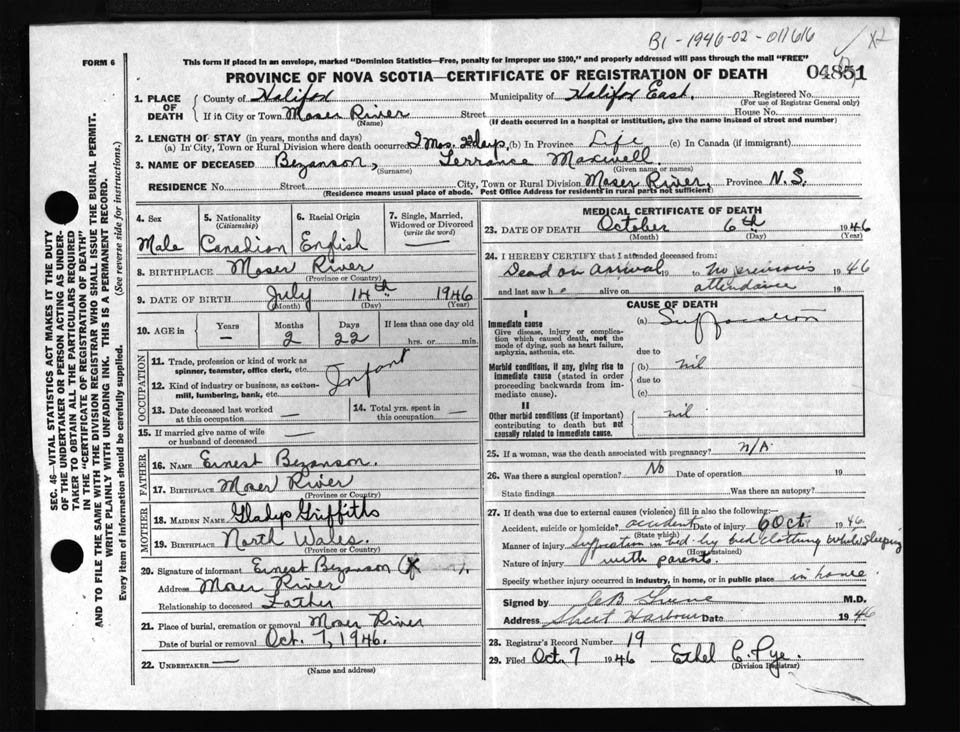 B1-1946-02-011616
X2
FORM 6
This form if placed in an envelope, marked "Dominion Statistics—Free, penalty for improper use $300," and properly addressed will pass through the mail "FREE"
PROVINCE OF NOVA SCOTIA—CERTIFICATE OF REGISTRATION OF DEATH
04851
SEC. 46—VITAL STATISTICS ACT MAKES IT THE DUTY
OF THE UNDERTAKER OR PERSON ACTING AS UNDER-
TAKER TO OBTAIN ALL THE PARTICULARS REQUIRED
IN THE "CERTIFICATE OF REGISTRATION OF DEATH"
AND TO FILE THE SAME WITH THE DIVISION REGISTRAR WHO SHALL ISSUE THE BURIAL PERMIT.
WRITE PLAINLY WITH UNFADING INK. THIS IS A PERMANENT RECORD.
Every item of information should be carefully supplied. (See reverse side for instructions.)
1. PLACE OF DEATH
County of Halifax Municipality of Halifax East. Registered No.
(For use of Registrar General only)
If in City or Town Moser River Street House No.
(Name) (If death occurred in a hospital or institution, give the name instead of street and number)
2. LENGTH OF STAY (in years, months and days)
(a) In City, Town or Rural Division where death occurred 2 Mos. 22 days (b) In Province Life (c) In Canada (if immigrant)
3. NAME OF DECEASED Bezanson, Terrance Maxwell.
(Surname) (Given name or names)
RESIDENCE No. Street City, Town or Rural Division Moser River, Province N.S.
(Residence means usual place of abode. Post Office Address for residents in rural parts not sufficient)
4. Sex
Male
5. Nationality
(Citizenship)
Canadian
6. Racial Origin
English
7. Single, Married,
Widowed or Divorced
(write the word)
—
8. BIRTHPLACE Moser River
(Province or Country)
9. DATE OF BIRTH July 14th 1946
(Month) (Day) (Year)
10. AGE in Years Months Days If less than one day old
— 2 22 hrs. or min.
OCCUPATION
11. Trade, profession or kind of work as
spinner, teamster, office clerk, etc.
Infant
12. Kind of industry or business, as cotton-
mill, lumbering, bank, etc.
13. Date deceased last worked
at this occupation —
14. Total yrs. spent in
this occupation —
15. If married give name of wife
or husband of deceased —
FATHER
16. NAME Ernest Bezanson.
17. BIRTHPLACE Moser River
(Province or Country)
MOTHER
18. MAIDEN NAME Gladys Griffiths
19. BIRTHPLACE North Wales.
(Province or Country)
20. Signature of informant Ernest Bezanson
Address Moser River
Relationship to deceased Father
21. Place of burial, cremation or removal Moser River
Date of burial or removal Oct. 7, 1946.
22. UNDERTAKER —
(Name and address)
MEDICAL CERTIFICATE OF DEATH
23. DATE OF DEATH October 6th 1946
(Month) (Day) (Year)
24. I HEREBY CERTIFY that I attended deceased from:
Dead on arrival 19 to no previous 1946
and last saw h e alive on attendance 19
CAUSE OF DEATH
I
Immediate cause
Give disease, injury or complica-
tion which caused death, not the
mode of dying, such as heart failure,
asphyxia, asthenia, etc.
(a) Suffocation
due to
Morbid conditions, if any, giving rise to
immediate cause (stated in order
proceeding backwards from im-
mediate cause).
(b) nil
due to
(c)
II
Other morbid conditions (if important)
contributing to death but not
causally related to immediate cause.
nil
25. If a woman, was the death associated with pregnancy? N/A
26. Was there a surgical operation? No Date of operation 19
State findings Was there an autopsy?
27. If death was due to external causes (violence) fill in also the following:—
Accident, suicide or homicide? accident Date of injury 6 Oct 1946
(State which)
Manner of injury suffocation in bed by bed clothing while sleeping
(How sustained)
Nature of injury with parents.
Specify whether injury occurred in industry, in home, or in public place in home
Signed by M.D.
Address Sheet Harbour Date 1946
28. Registrar's Record Number 19
29. Filed Oct 7 1946 Ethel C. Pye.
(Division Registrar)